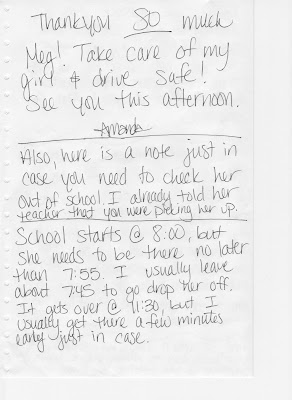 Thankyou SO much
Meg! Take care of my
girl & drive safe!
See you this afternoon.
Amanda
Also, here is a note just in
case you need to check her
out of school. I already told her
teacher that you were picking her up.
School starts @ 8:00, but
she needs to be there no later
than 7:55. I usually leave
about 7:45 to go drop her off.
It gets over @ 11:30, but I
usually get there a few minutes
early just in case.